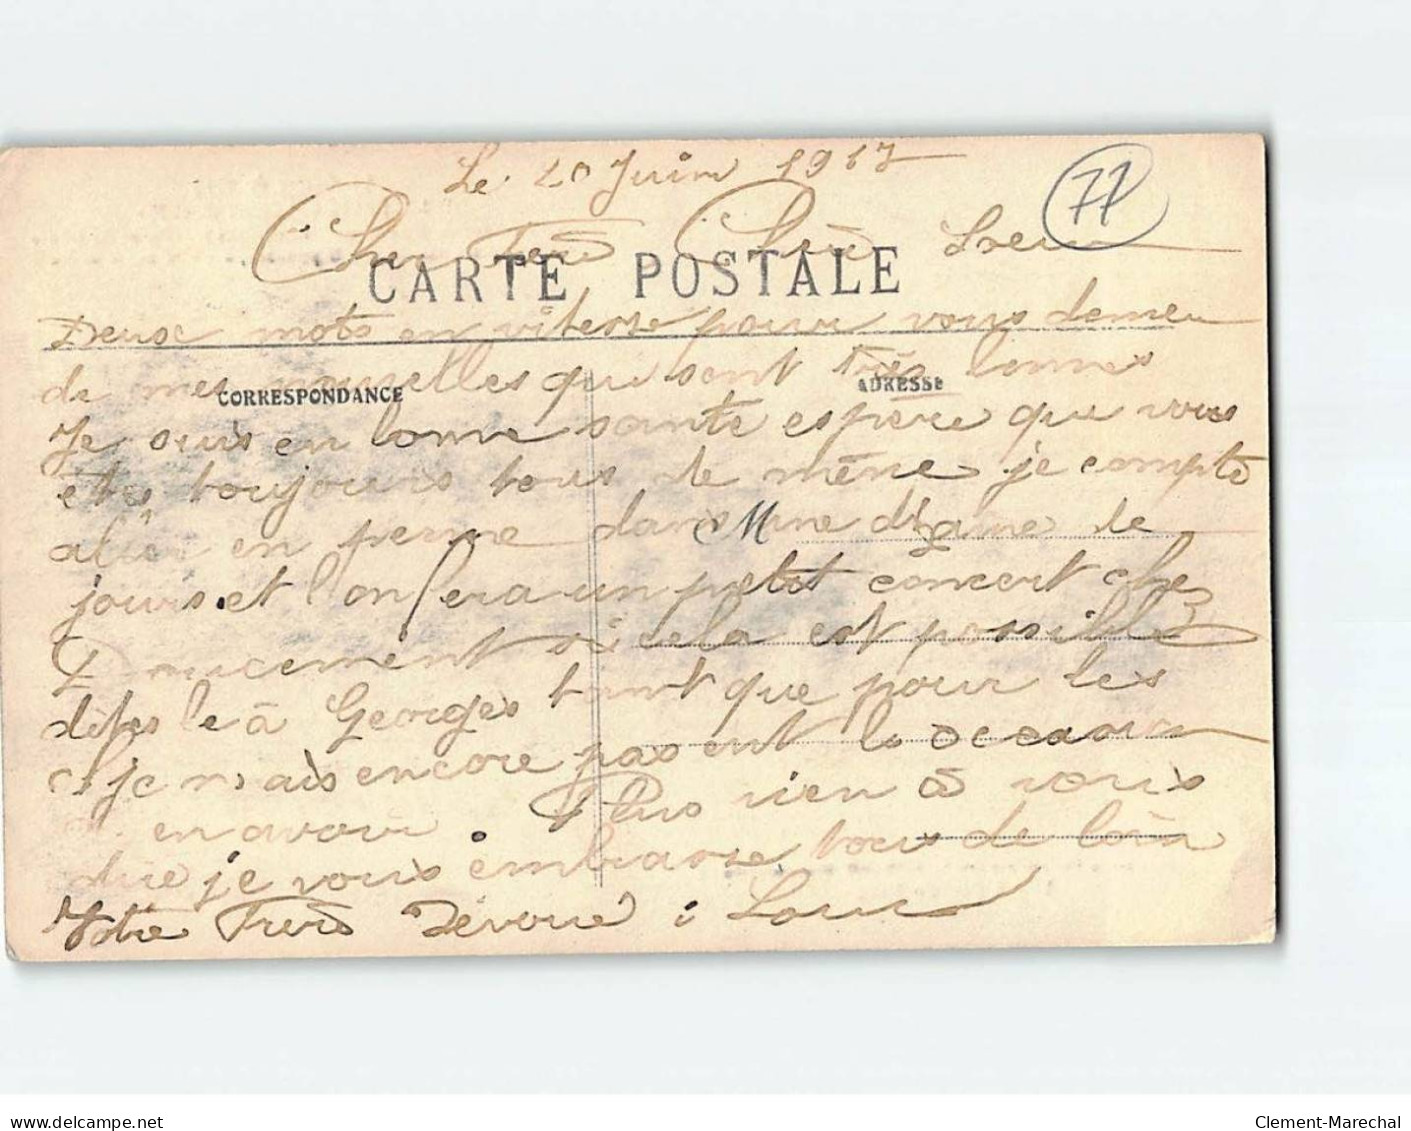 Le 20 Juin 1917
77
Cher Frère Chère Soeur
CARTE POSTALE
Deux mots en vitesse pour vous donneu
de mes nouvelles qui sont très bonnes
CORRESPONDANCE
ADRESSE
Je suis en bonne santé espère que vous
etes toujours tous de même je compte
aller en perme dans M une dizaine de
jours et l'on fera un petit concert chez
Doucement si cela est possible
dites le à Georges tant que pour les
je mais encore pas ent le occasion
en avoir. Plus rien à vous
dire je vous embrasse tous de loin
Votre Frère Dévoué Louis
delcampe.net
Clement-Marechal